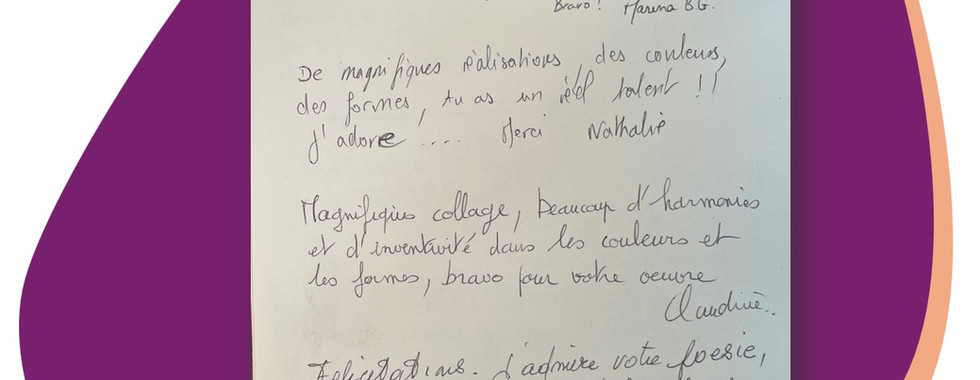 Bravo ! Marina B.G.
De magnifiques réalisations, des couleurs,
des formes, tu as un réel talent !!
J'adore .... Merci Nathalie
Magnifiques collage, beaucoup d'harmonies
et d'inventivité dans les couleurs et
les formes, bravo pour votre oeuvre
Claudine..
Félicitations. J'admire votre poesie,